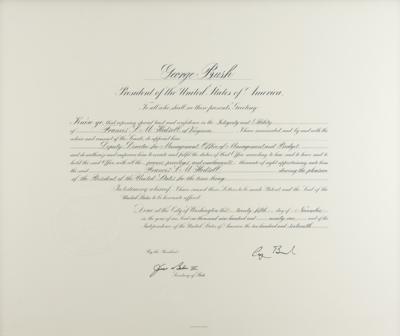 George Bush
President of the United States of America.
To all who shall see these presents, Greeting:
Know ye, that reposing special trust and confidence in the Integrity and Ability
of Francis S. M. Hodsoll of Virginia I have nominated, and, by and with the
advice and consent of the Senate, do appoint him
Deputy Director for Management, Office of Management and Budget
and do authorize and empower him to execute and fulfil the duties of that Office according to law, and to have and to
hold the said Office, with all the powers, privileges, and emoluments thereunto of right appertaining, unto him
the said Francis S. M. Hodsoll during the pleasure
of the President of the United States for the time being.
In testimony whereof, I have caused these Letters to be made Patent and the Seal of the
United States to be hereunto affixed.
Done at the City of Washington this twenty-fifth day of November
in the year of our Lord one thousand nine hundred and ninety-one and of the
Independence of the United States of America the two hundred and sixteenth
By the President:
Secretary of State